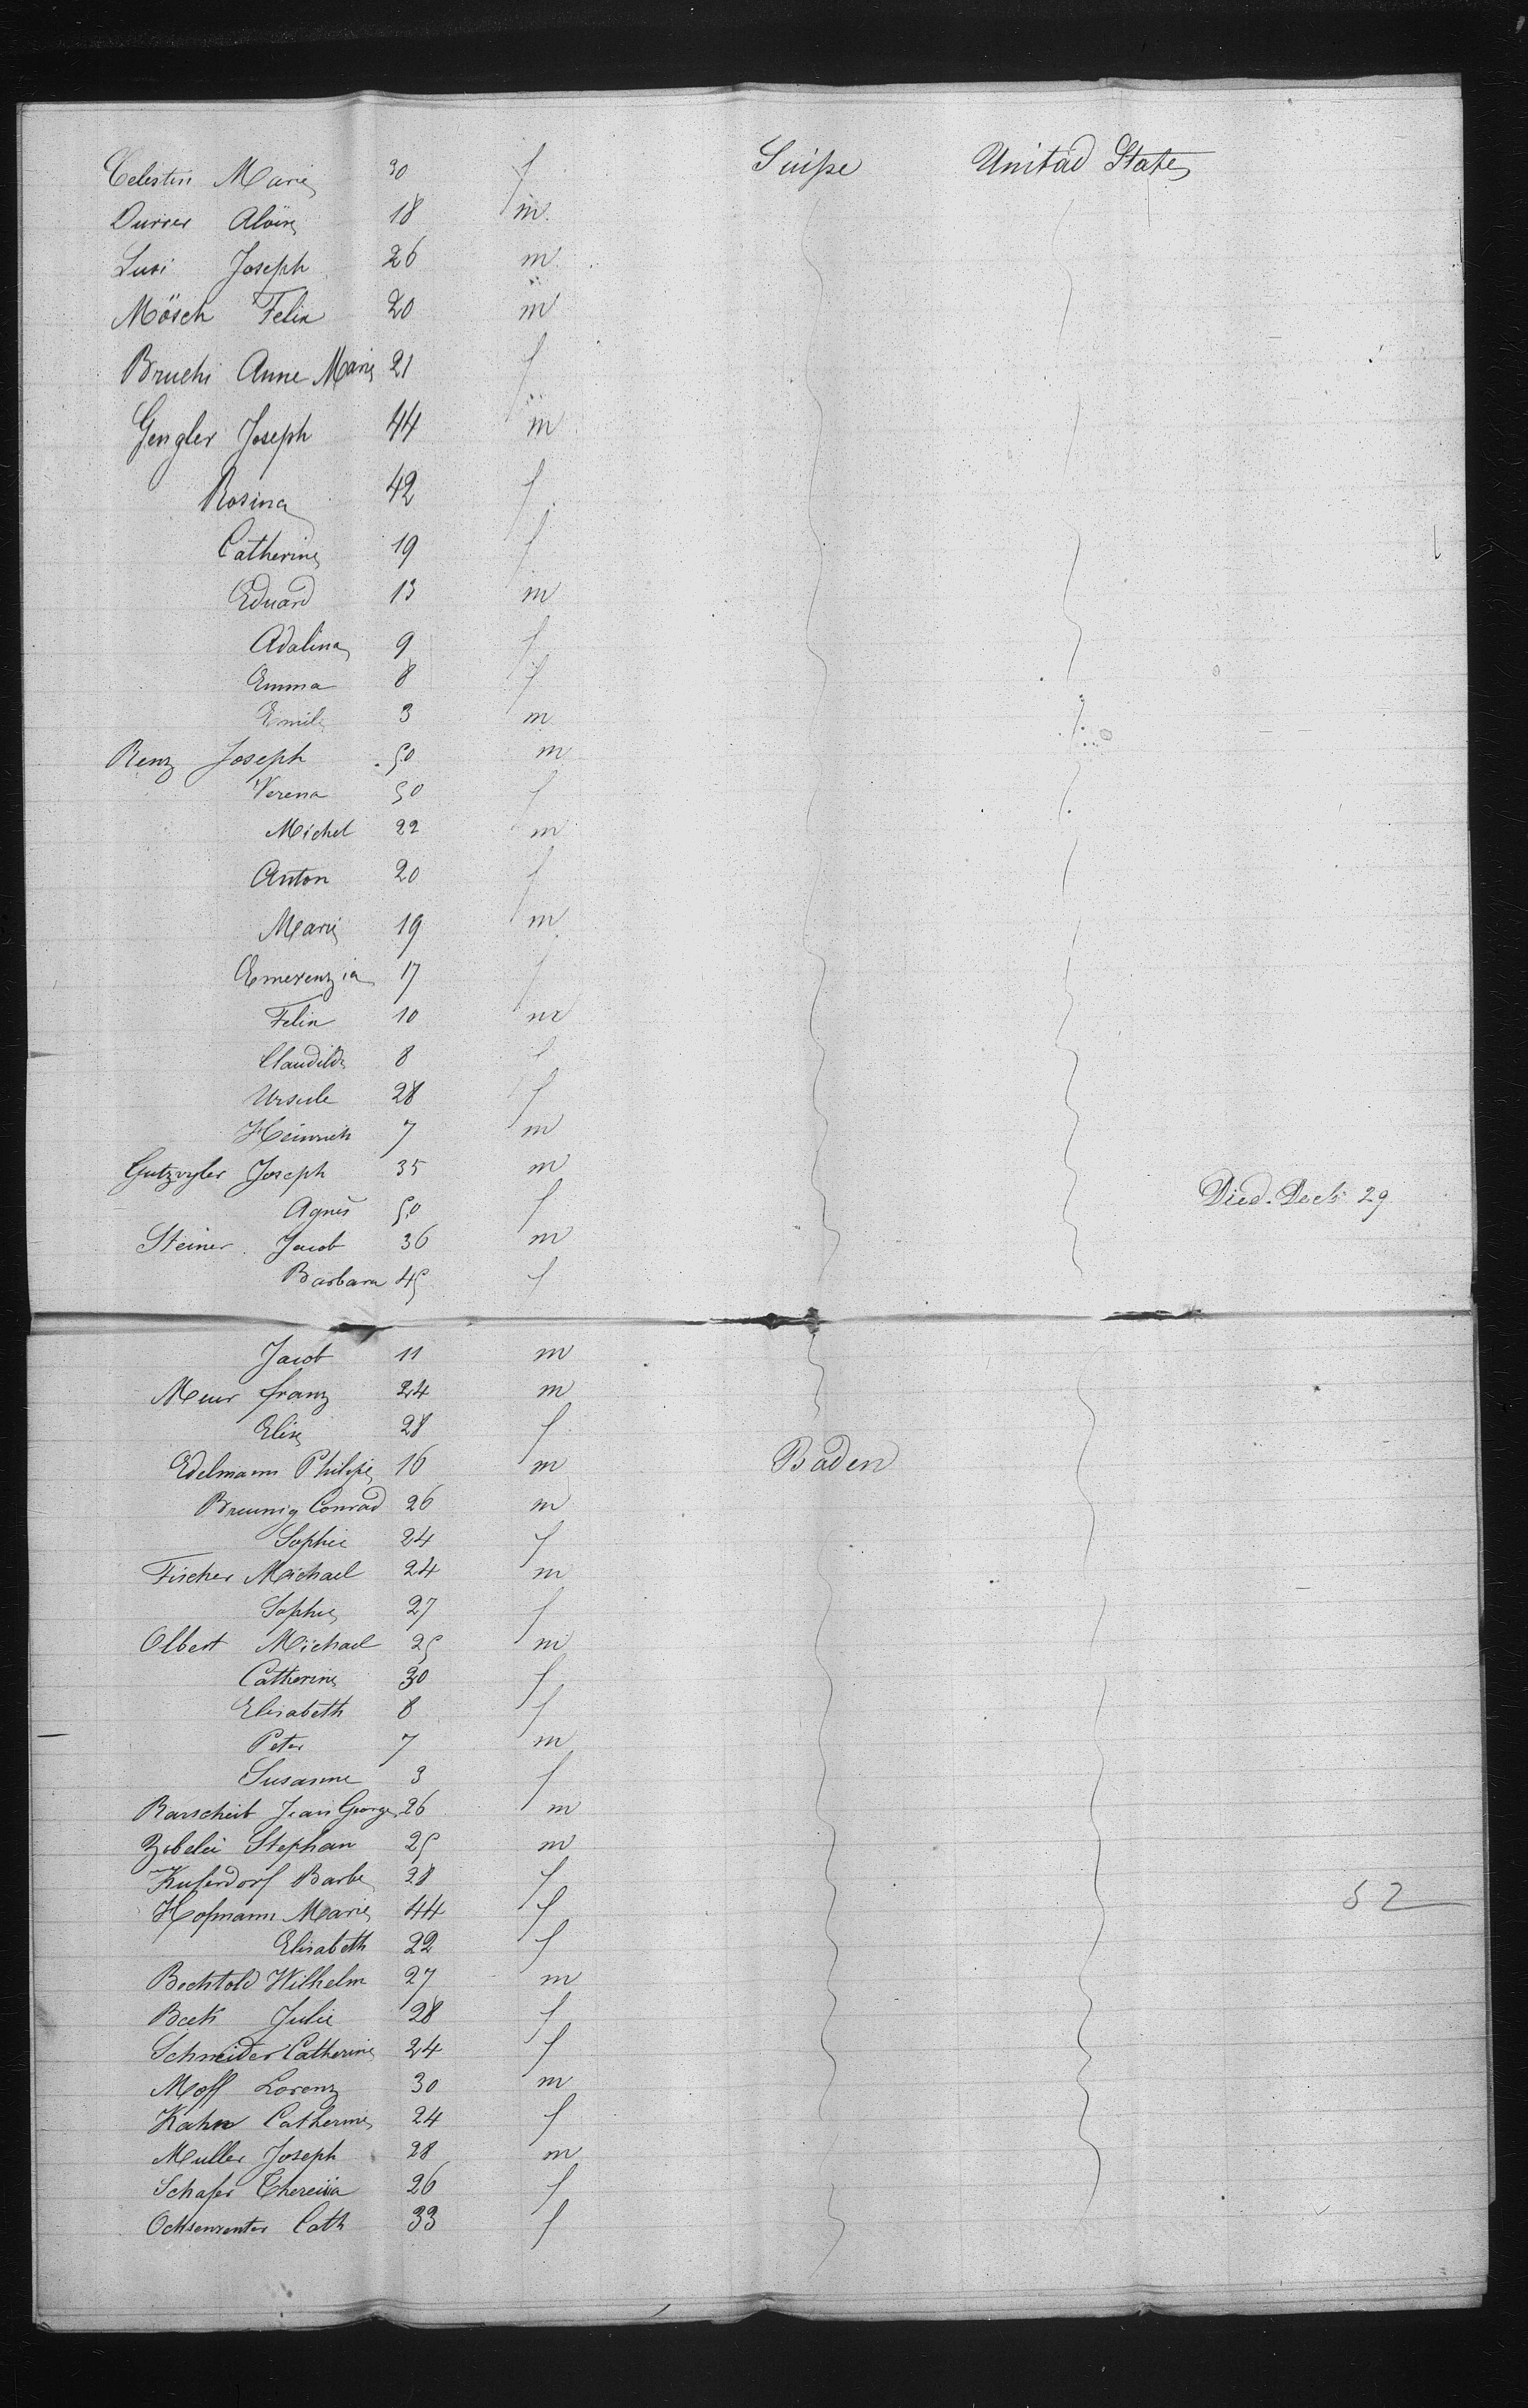 Celestin Marie 30 f Suisse Unitad States
Durrer Alois 18 m
Lusi Joseph 26 m
Mösch Felix 20 m
Bruchi Anne Marie 21 f
Gengler Joseph 44 m
Rosina 42 f
Catherine 19 f
Eduard 13 m
Adalina 9 f
Emma 8 f
Emile 3 m
Renz Joseph 50 m
Verena 50 f
Michel 22 m
Anton 20 f
Marie 19 m
Emerenzia 17 f
Felix 10 m
Claudilde 8 f
Ursule 28 f
Heinrich 7 m
Gutzwyler Joseph 35 m
Agnes 50 f Died. Dec. 29
Steiner Jacob 36 m
Barbara 45 f
Jacob 11 m
Meur franz 24 m
Elise 28 f
Edelmann Philipe 16 m Baden
Breunig Conrad 26 m
Sophie 24 f
Fischer Michael 24 m
Sophie 27 f
Olbert Michael 25 m
Catherine 30 f
Elisabeth 8 f
Peter 7 m
Susanne 3 f
Barscheit Jean George 26 m
Zobelei Stephan 25 m
Kuferdorf Barbe 28 f
Hofmann Marie 44 f 52
Elisabeth 22 f
Bechtold Wilhelm 27 m
Beck Julie 28 f
Schneider Catherine 24 f
Moff Lorenz 30 m
Kahn Catherine 24 f
Muller Joseph 28 m
Schafer Theresia 26 f
Ochsenreuter Cath 33 f